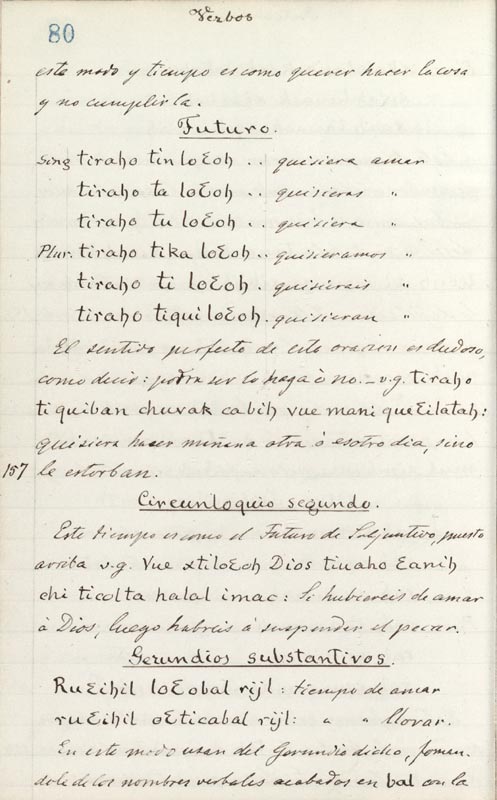 Verbos
80
este modo y tiempo es como querer hacer la cosa
y no cumplirla.
Futuro.
Sing tiraho tin loƐoh .. quisiera amar
tiraho ta loƐoh .. quisieras "
tiraho tu loƐoh .. quisiera "
Plur. tiraho tika loƐoh .. quisieramos "
tiraho ti loƐoh . quisierais "
tiraho tiqui loƐoh . quisieran "
El sentido perfecto de esta oracion es dudoso,
como decir: podra ser lo haga ò no. _ v.g. tiraho
tiquiban chuvak cabih vue mani queƐilatah:
quisiera hacer miñana otra ò esotro dia, sino
157 le estorban.
Circunloquio segundo.
Este tiempo es como el Futuro de Subjuntivo, puesto
arriba v.g. Vue xtiloƐoh Dios tiuaho Ɛanih
chi ticolta halal imac: Si hubiereis de amar
à Dios, luego habreis á suspender el pecar.
Gerundios substantivos.
RuƐihil loƐobal rijl: tiempo de amar
ruƐihil oƐticabal rijl: " " llorar.
En este modo usan del Gerundio dicho, foman-
dole de los nombres verbales acabados en bal con la